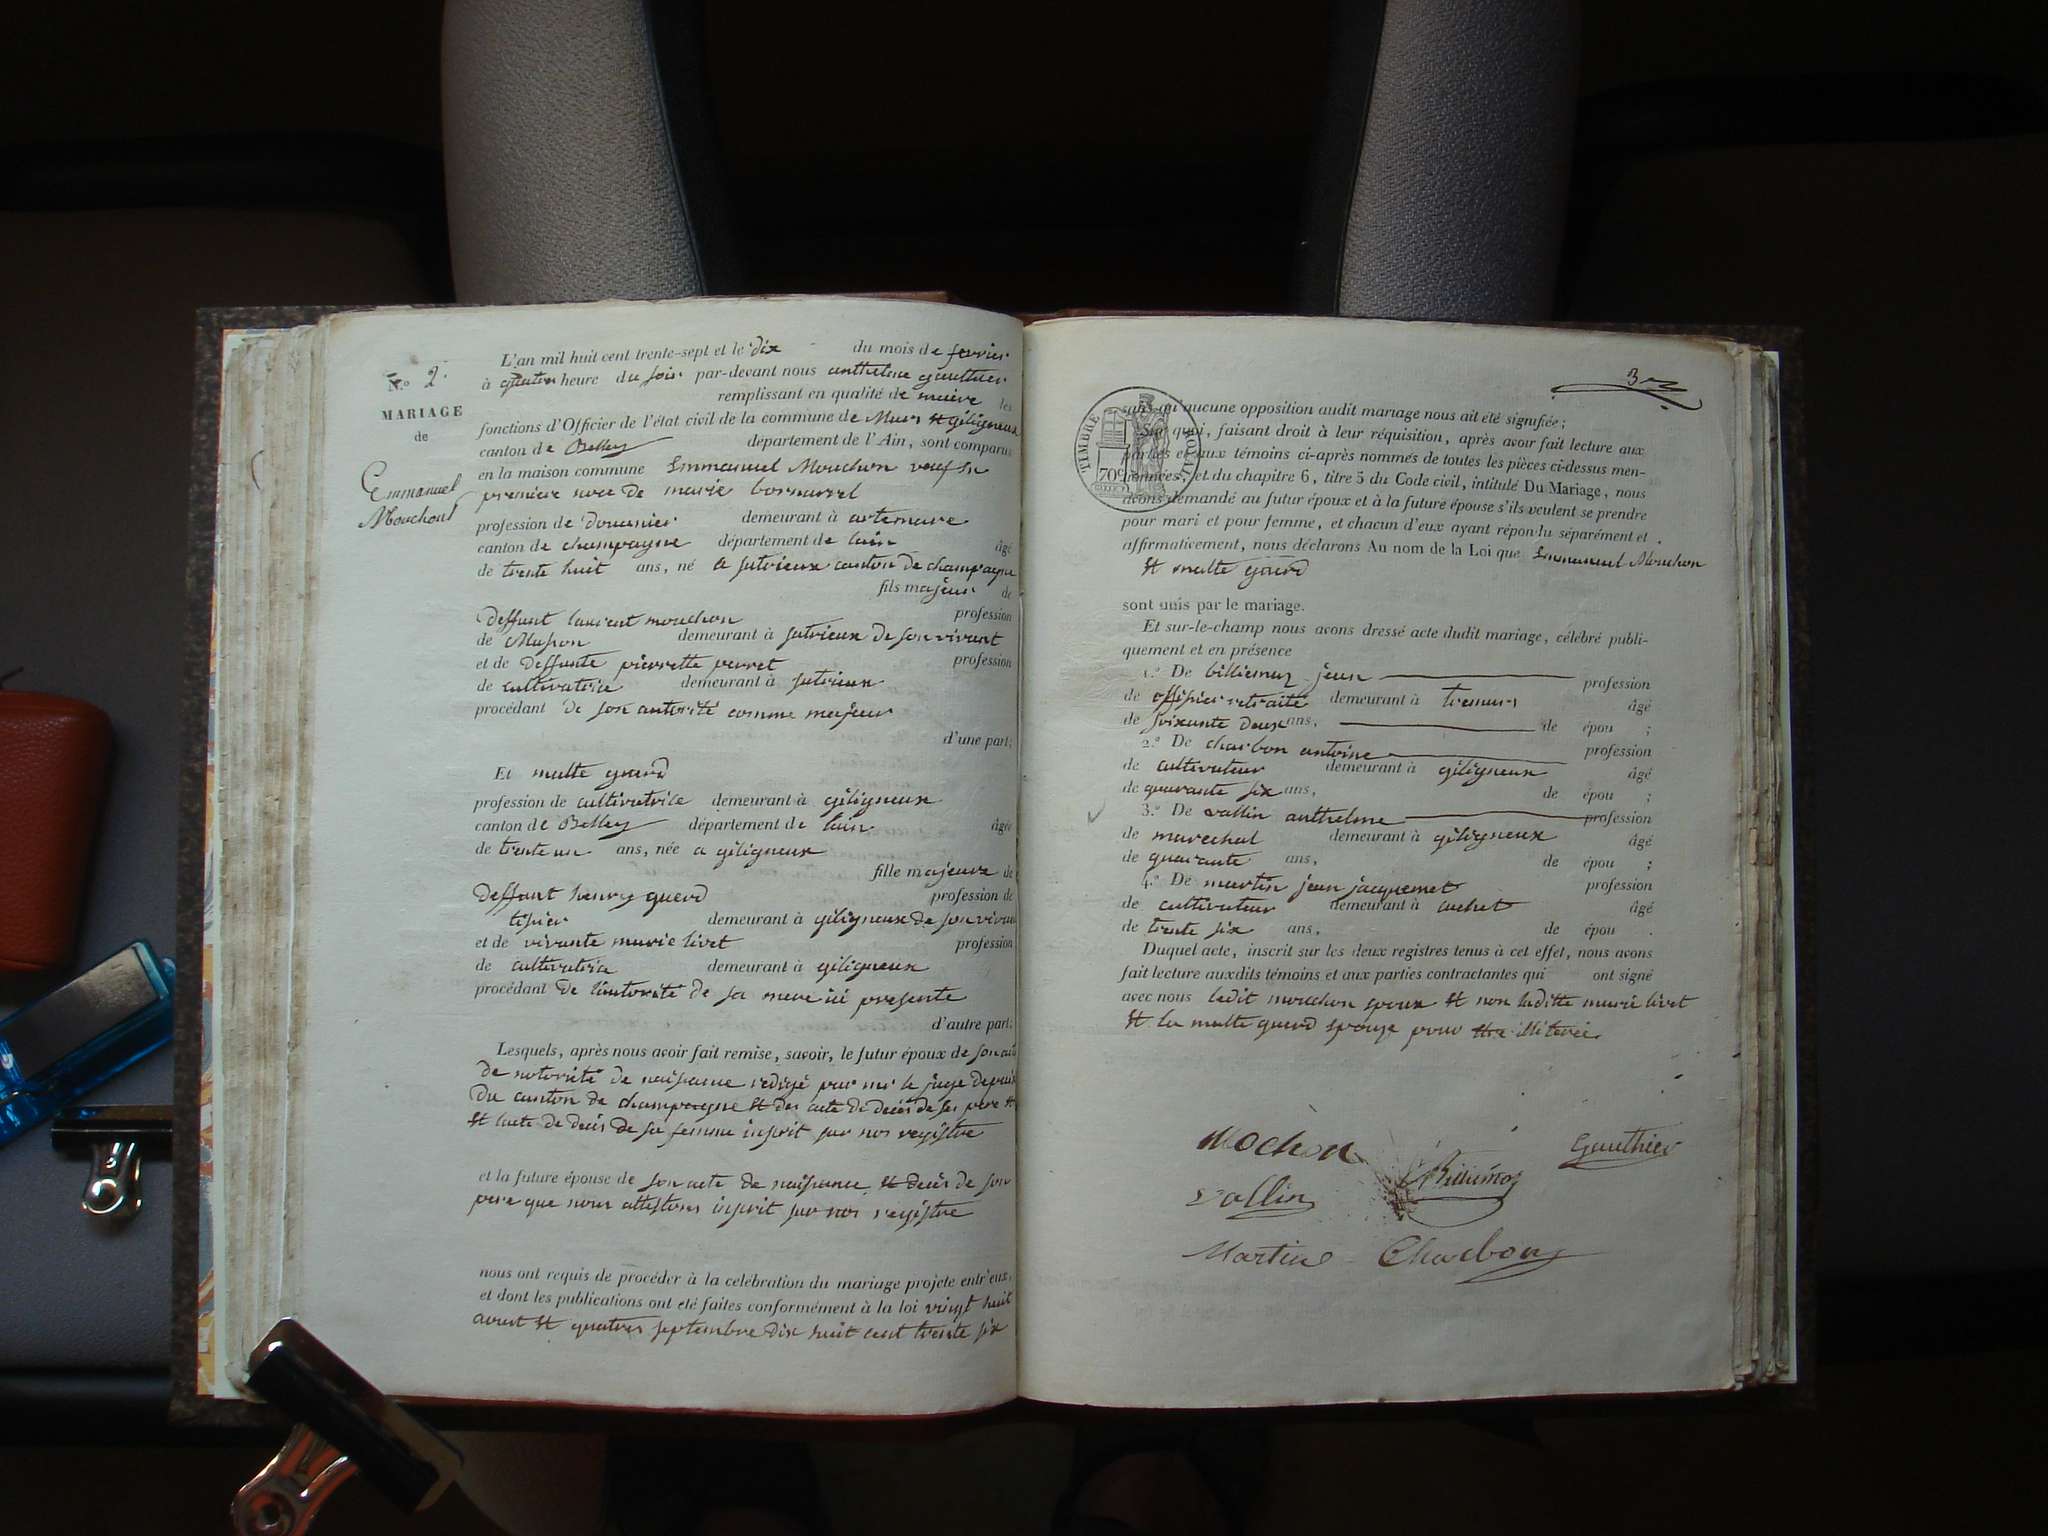 N.º 2.
MARIAGE
de
Emmanuel
Mouchont
L'an mil huit cent trente-sept et le dix du mois de fevrier
à quatre heure du soir par-devant nous anthelme gauthier
remplissant en qualité de maire les
fonctions d'Officier de l'état civil de la commune de Murs et géligneux
canton de Belley département de l'Ain, sont comparus
en la maison commune Emmanuel Mouchon veuf en
première noce de marie bornarel
profession de douanier demeurant à artemare
canton de champagne département de lain âgé
de trente huit ans, né a sutrieux canton de champagne
fils majeur de
deffunt laurent mouchon profession
de Masson demeurant à sutrieux de son vivant
et de deffunte pierrette perret profession
de cultivatrice demeurant à sutrieux
procédant de son autorité comme majeur
d'une part;
Et malte guerd
profession de cultivatrice demeurant à géligneux
canton de Belley département de lain âgée
de trente un ans, née a géligneux
fille majeure de
deffunt henry guerd profession de
tisier demeurant à géligneux de son vivan
et de vivante marie livet profession
de cultivatrice demeurant à géligneux
procédant de l'autorité de sa mere ici presente
d'autre part;
Lesquels, après nous avoir fait remise, savoir, le futur époux de son acte
de notoriété de naissance rédigé par mr le juge de paix
du canton de champagne et des acte de décès de ses pere et
et l'acte de décès de sa femme inscrit sur nos registre
et la future épouse de son acte de naissance et décès de son
pere que nous attestons inscrit sur nos registre
nous ont requis de procéder à la celébration du mariage projete entr'eux,
et dont les publications ont été faites conformément à la loi vingt huit
aoust et quatres septembre dix huit cent trente six
3
TIMBRE ROYAL
70c
sans qu'aucune opposition audit mariage nous ait été signifiée;
Sur quoi, faisant droit à leur réquisition, après avoir fait lecture aux
parties et aux témoins ci-après nommés de toutes les pièces ci-dessus men-
tionnées, et du chapitre 6, titre 5 du Code civil, intitulé Du Mariage, nous
avons demandé au futur époux et à la future épouse s'ils veulent se prendre
pour mari et pour femme, et chacun d'eux ayant répondu séparément et
affirmativement, nous déclarons Au nom de la Loi que Emmanuel Mouchon
et malte guerd
sont unis par le mariage.
Et sur-le-champ nous avons dressé acte dudit mariage, célébré publi-
quement et en présence
1.º De billiemaz jean profession
de officier retraité demeurant à tremurs âgé
de soixante deux ans, de épou ;
2.º De charbon antoine profession
de cultivateur demeurant à géligneux âgé
de quarante six ans, de épou ;
3.º De vallin anthelme profession
de marechal demeurant à géligneux âgé
de quarante ans, de épou ;
4.º De martin jean jacquemet profession
de cultivateur demeurant à cuchet âgé
de trente six ans, de épou .
Duquel acte, inscrit sur les deux registres tenus à cet effet, nous avons
fait lecture auxdits témoins et aux parties contractantes qui ont signé
avec nous ledit mouchon epoux et non laditte marie livet
et la malte guerd epouse pour illiterée
Mochon
Gauthier
Billiémaz
vallin
Martin
Charbon